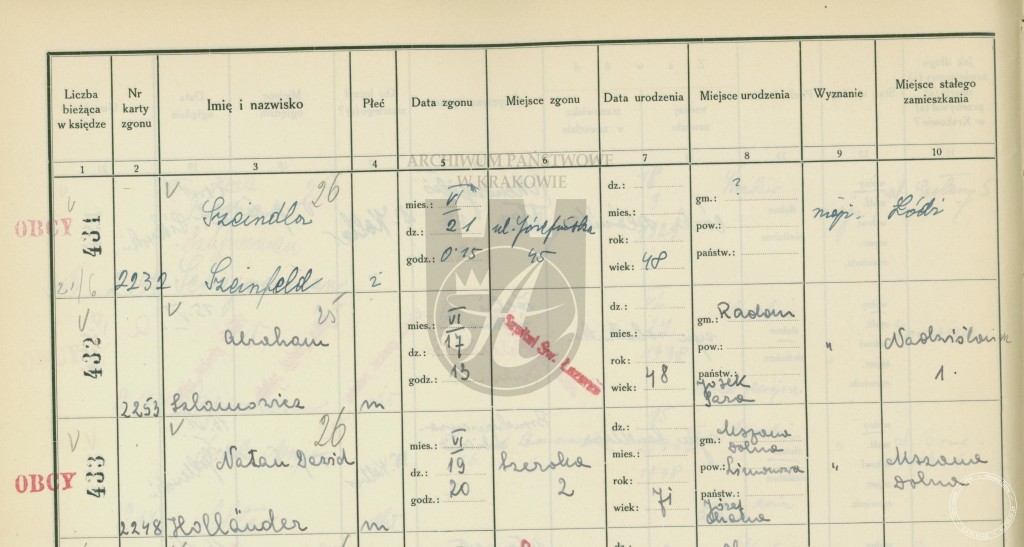 Liczba bieżąca w księdze
Nr karty zgonu
Imię i nazwisko
Płeć
Data zgonu
Miejsce zgonu
Data urodzenia
Miejsce urodzenia
Wyznanie
Miejsce stałego zamieszkania
1 2 3 4 5 6 7 8 9 10
ARCHIWUM PAŃSTWOWE
W KRAKOWIE
V
OBCY
431
21/6
2232
V
26
Szeindla
Szeinfeld
ż
mies.: VI
dz.: 21
godz.: 0.15
ul. Józefińska
45
dz.:
mies.:
rok:
wiek: 48
?
gm.:
pow.:
państw.:
mojż.
Łódź
V
432
2253
V
25
Abraham
Szlamowicz
m
mies.: VI
dz.: 17
godz.: 13
Szpital Św. Łazarza
dz.:
mies.:
rok:
wiek: 48
gm.: Radom
pow.:
państw.:
Josek
Sara
"
1.
V
OBCY
433
2248
V
26
Natan Dawid
Holländer
m
mies.: VI
dz.: 19
godz.: 20
Szeroka
2
dz.:
mies.:
rok:
wiek: 71
gm.: Mszana
Dolna
pow.: Limanowa
państw.:
Józef
"
Mszana
Dolna
dz.: